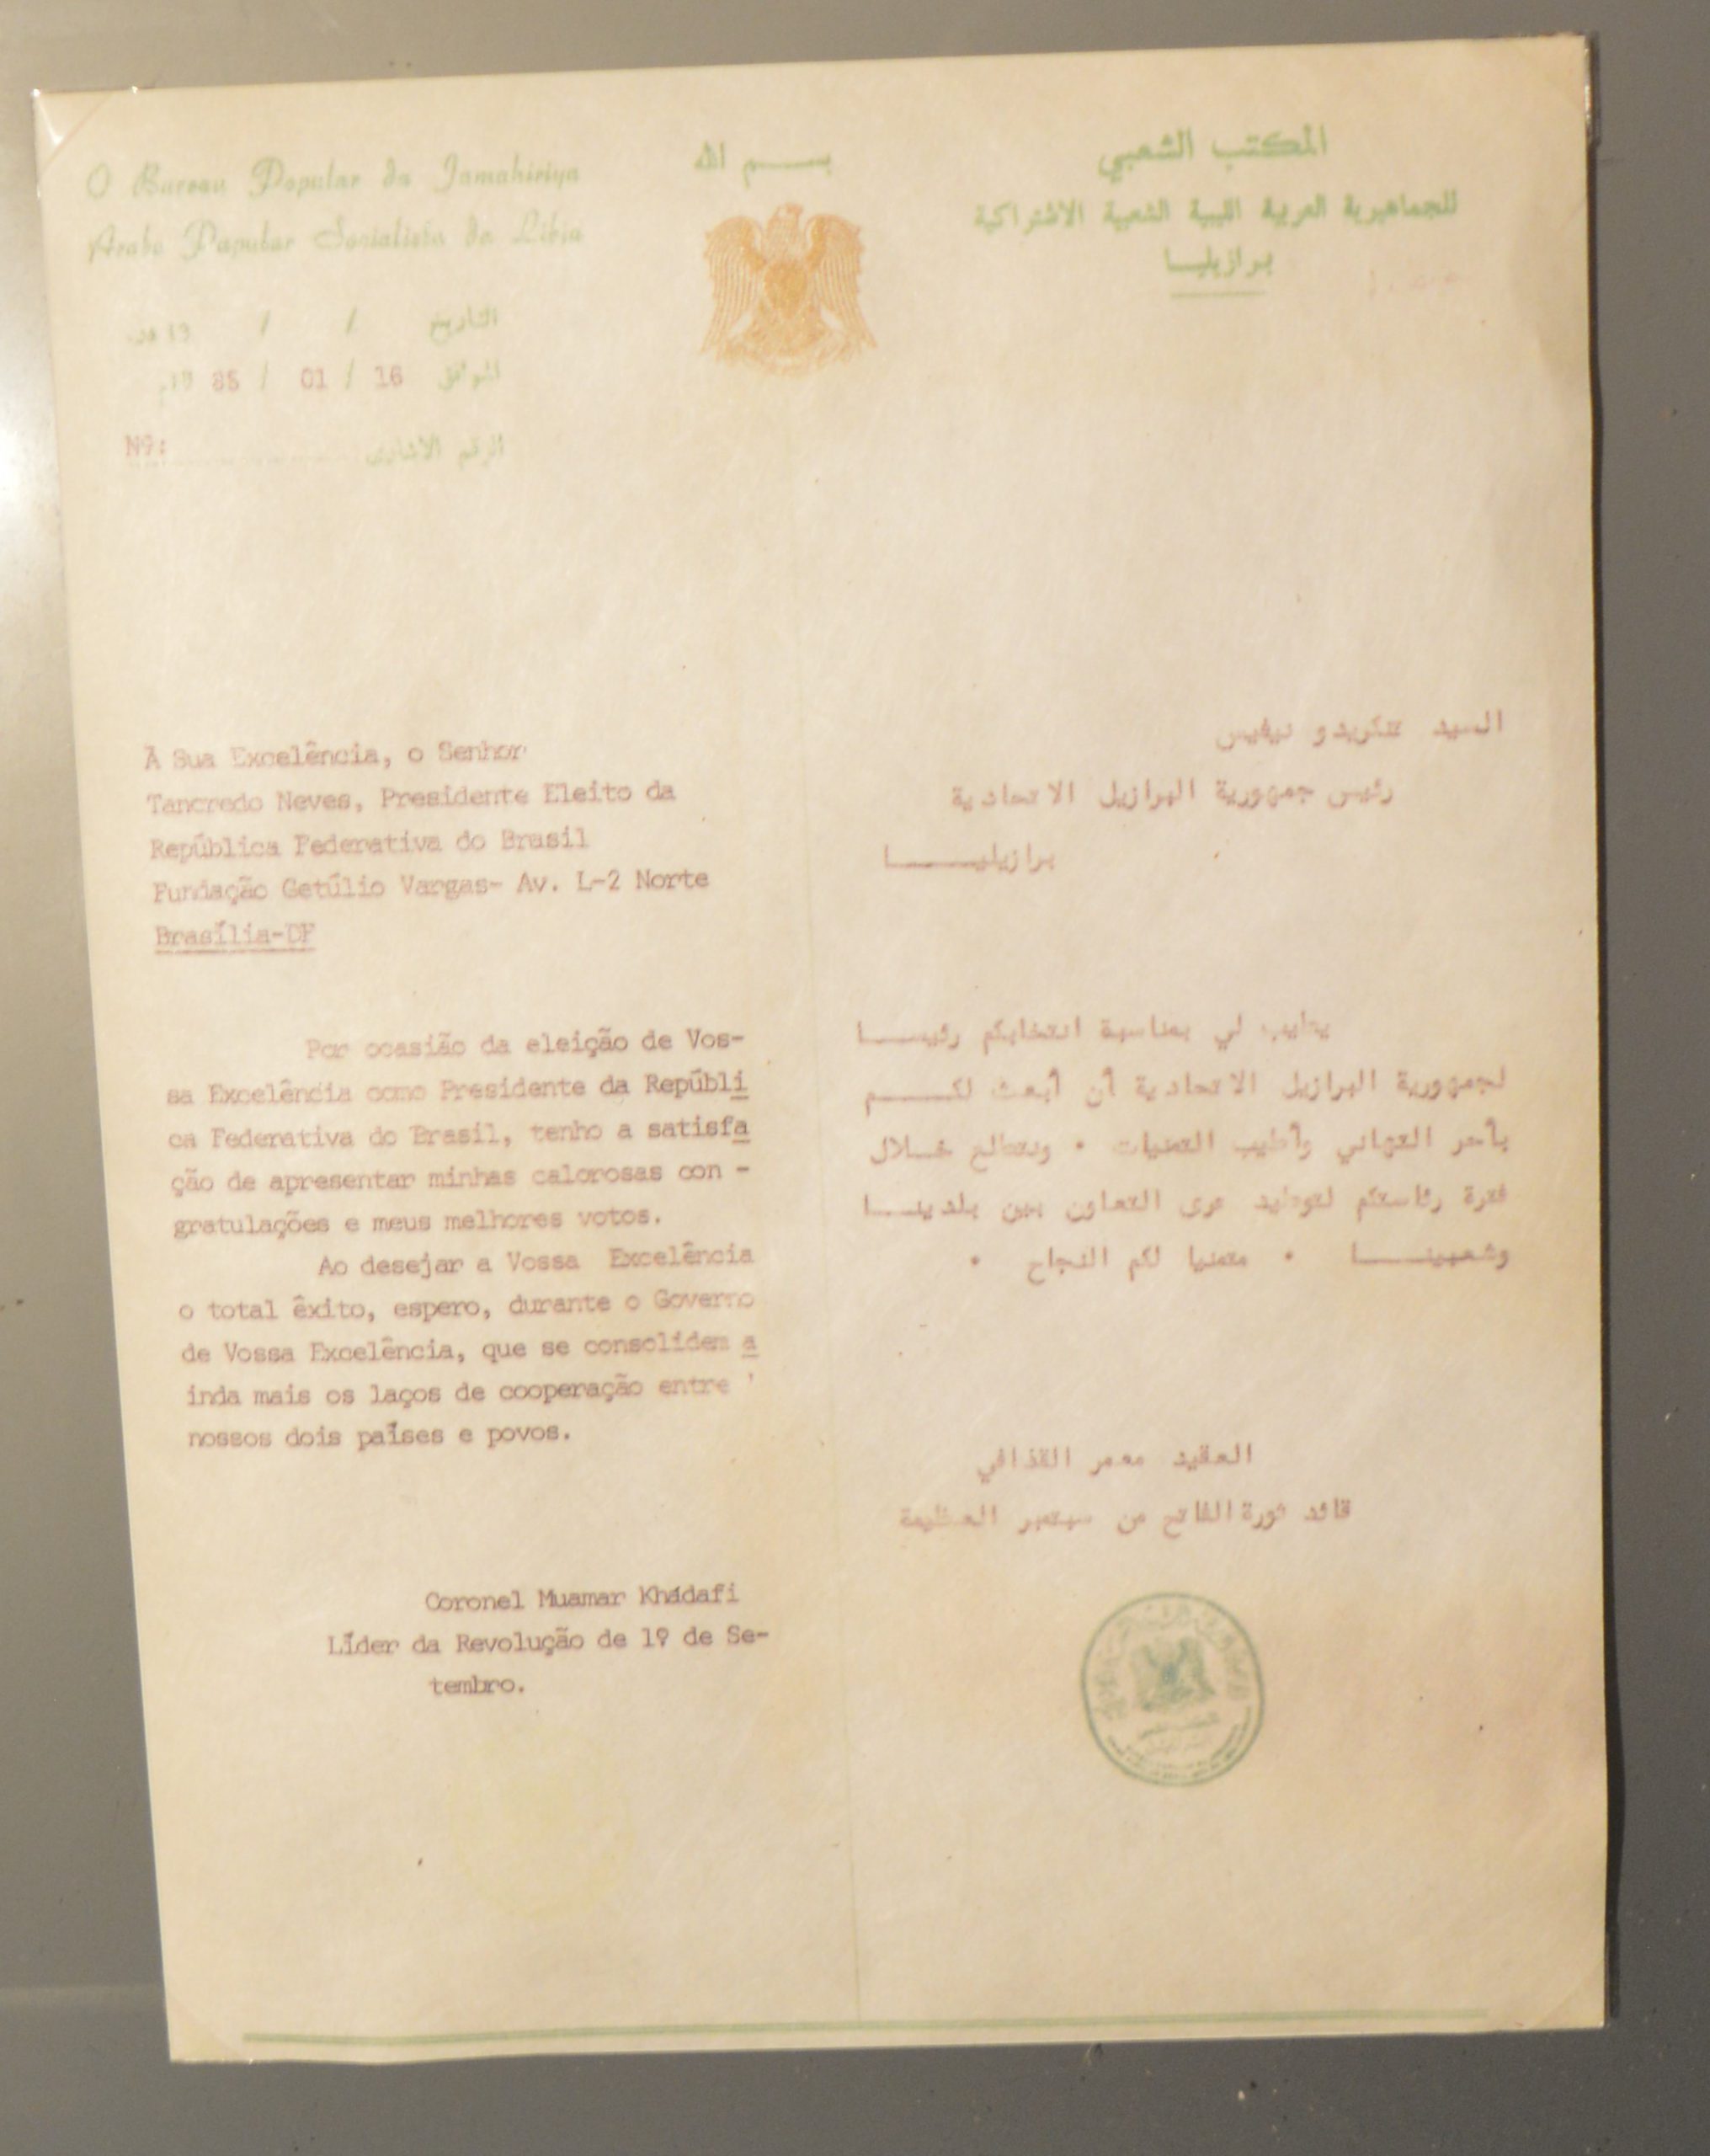 O Bureau Popular da Jamahiriya
Arabe Popular Socialista da Líbia
بسم الله
المكتب الشعبي
للجماهيرية العربية الليبية الشعبية الاشتراكية
برازيليا
التاريخ / / 13
الموافق 16 / 01 / 85 19م
Nº: الرقم الاشاري
À Sua Excelência, o Senhor
Tancredo Neves, Presidente Eleito da
República Federativa do Brasil
Fundação Getúlio Vargas- Av. L-2 Norte
Brasília-DF
Por ocasião da eleição de Vos-
sa Excelência como Presidente da Repúbli
ca Federativa do Brasil, tenho a satisfa
ção de apresentar minhas calorosas con -
gratulações e meus melhores votos.
Ao desejar a Vossa Excelência
o total êxito, espero, durante o Governo
de Vossa Excelência, que se consolidem a
inda mais os laços de cooperação entre '
nossos dois países e povos.
Coronel Muamar Khádafi
Líder da Revolução de 1º de Se-
tembro.
السيد تنكريدو نيفيس
رئيس جمهورية البرازيل الاتحادية
برازيليــــــا
يطيب لي بمناسبة انتخابكم رئيســـا
لجمهورية البرازيل الاتحادية أن أبعث لكـــــم
بأحر التهاني وأطيب التمنيات . ونتطلع خــلال
فترة رئاستكم لتوطيد عرى التعاون بين بلدينـــا
وشعبينــــا . متمنيا لكم النجاح .
العقيد معمر القذافي
قائد ثورة الفاتح من سبتمبر العظيمة